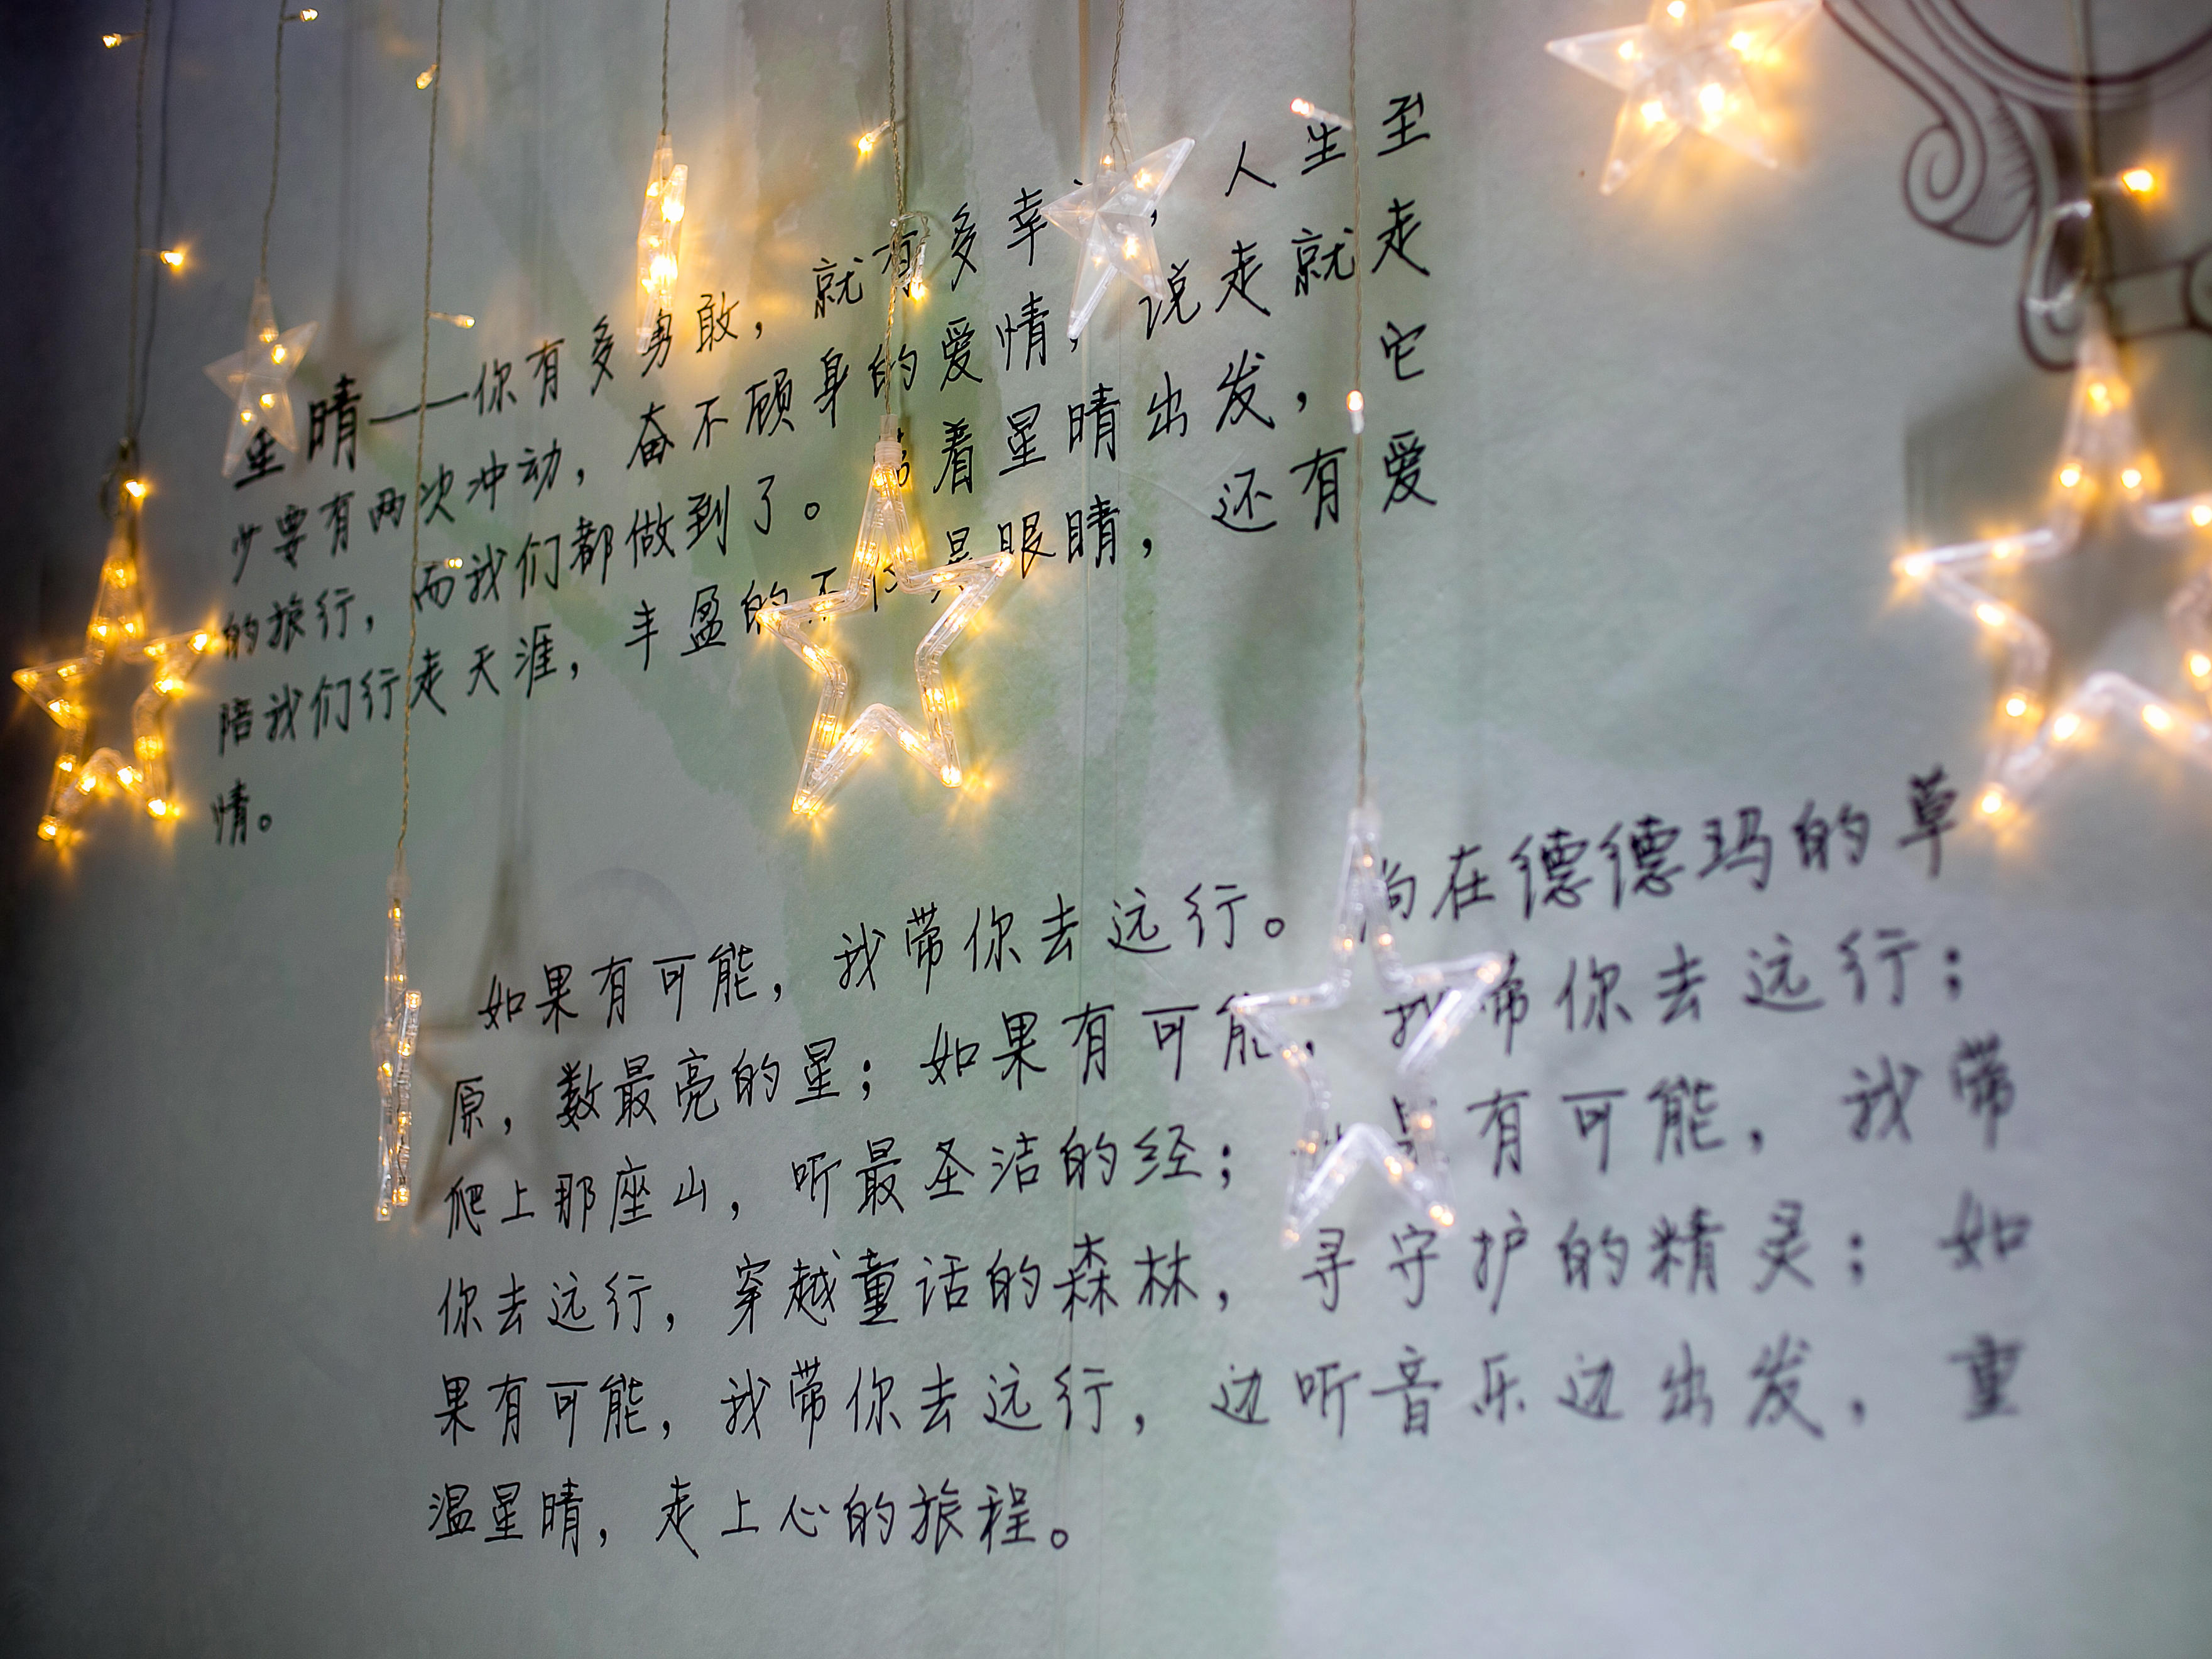 星晴——你有多勇敢，就有多幸，人生至
少要有两次冲动，奋不顾身的爱情，说走就走
的旅行，而我们都做到了。着星晴出发，它
陪我们行走天涯，丰盈的不仅是眼睛，还有爱
情。
如果有可能，我带你去远行。尚在德德玛的草
原，数最亮的星；如果有可能，我带你去远行；
爬上那座山，听最圣洁的经；如果有可能，我带
你去远行，穿越童话的森林，寻守护的精灵；如
果有可能，我带你去远行，边听音乐边出发，重
温星晴，走上心的旅程。